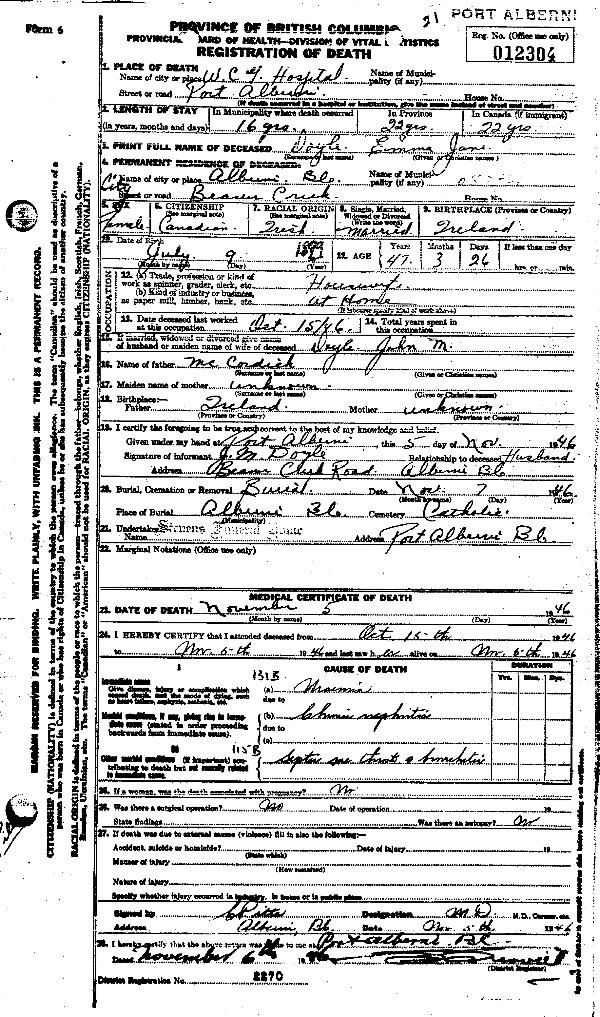 21 PORT ALBERNI
Form 6
PROVINCE OF BRITISH COLUMBIA
PROVINCIAL BOARD OF HEALTH—DIVISION OF VITAL STATISTICS
REGISTRATION OF DEATH
Reg. No. (Office use only)
012304
1. PLACE OF DEATH
Name of city or place W.C.G. Hospital Name of Municipality (if any)
Street or road Port Alberni House No.
(If death occurred in a hospital or institution, give the name instead of street and number)
2. LENGTH OF STAY In Municipality where death occurred In Province In Canada (if immigrant)
(in years, months and days) 16 yrs. 22 yrs 22 yrs
3. PRINT FULL NAME OF DECEASED Doyle Emma Jane
(Surname or last name) (Given or Christian names)
4. PERMANENT RESIDENCE OF DECEASED:
Name of city or place Alberni Bc. Name of Municipality (if any)
Street or road Beaver Creek House No.
5. SEX 6. CITIZENSHIP (See marginal note) 7. RACIAL ORIGIN (See marginal note) 8. Single, Married, Widowed or Divorced (Write the word) 9. BIRTHPLACE (Province or Country)
Female Canadian Irish Married Ireland
10. Date of Birth July 9
(Month by name) (Day) (Year)
11. AGE Years Months Days If less than one day
47 3 26 hrs. or min.
OCCUPATION
12. (a) Trade, profession or kind of work as spinner, grader, clerk, etc. Housewife
(b) Kind of industry or business, as paper mill, lumber, bank, etc. at Home
13. Date deceased last worked at this occupation Oct. 15/46 14. Total years spent in this occupation
15. If married, widowed or divorced give name of husband or maiden name of wife of deceased Doyle John M.
16. Name of father McCordick
(Surname or last name) (Given or Christian names)
17. Maiden name of mother unknown
(Surname or last name) (Given or Christian names)
18. Birthplace:—
Father Ireland Mother unknown
(Province or Country) (Province or Country)
19. I certify the foregoing to be true and correct to the best of my knowledge and belief.
Given under my hand at Port Alberni, this 5 day of Nov. 1946
Signature of informant J.M. Doyle Relationship to deceased Husband
Address Beaver Creek Road Alberni Bc
20. Burial, Cremation or Removal Burial Date Nov. 7 1946
(Month by name) (Day) (Year)
Place of Burial Alberni Bc. Cemetery Catholic
(Municipality)
21. Undertaker Name Stevens Funeral Home Address Port Alberni Bc.
22. Marginal Notations (Office use only)
MEDICAL CERTIFICATE OF DEATH
23. DATE OF DEATH November 5 1946
(Month by name) (Day) (Year)
24. I HEREBY CERTIFY that I attended deceased from Oct 15-th 1946
to Nov. 5-th 1946 and last saw h er alive on Nov. 5-th 1946
CAUSE OF DEATH DURATION
Yrs. Mos. Dys.
I
131B
Immediate cause
Give disease, injury or complication which caused death, not the mode of dying, such as heart failure, asphyxia, asthenia, etc.
(a) Uraemia
due to
Morbid conditions, if any, giving rise to immediate cause (stated in order proceeding backwards from immediate cause).
(b) Chronic nephritis
due to
(c)
II
115B
Other morbid conditions (if important) contributing to death but not causally related to immediate cause.
septic sore throat & bronchitis
25. If a woman, was the death associated with pregnancy? No
26. Was there a surgical operation? No Date of operation 19
State findings Was there an autopsy? No
27. If death was due to external causes (violence) fill in also the following:—
Accident, suicide or homicide? Date of injury 19
(State which)
Manner of injury
(How sustained)
Nature of injury
Specify whether injury occurred in industry, in home or in public place
Signed by Designation M.D. M.D., Coroner, etc.
Address Alberni, Bc. Date Nov 5-th 1946
28. I hereby certify that the above return was made to me at Port Alberni Bc
Dated November 6th 1946
(District Registrar)
District Registration No. 2270
MARGIN RESERVED FOR BINDING. WRITE PLAINLY, WITH UNFADING INK. THIS IS A PERMANENT RECORD.